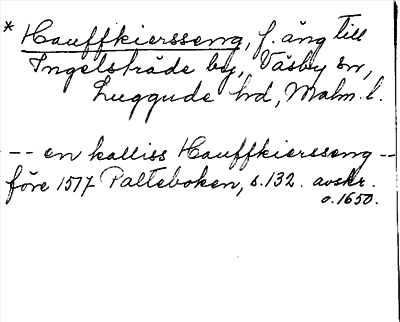 * Hauffkiersseng, f. äng till
Ingelsträde by, Väsby sn,
Luggude hd, Malm. l.
-- en kalliss Hauffkiersseng --
före 1517 Palteboken, s. 132. avskr.
o. 1650.